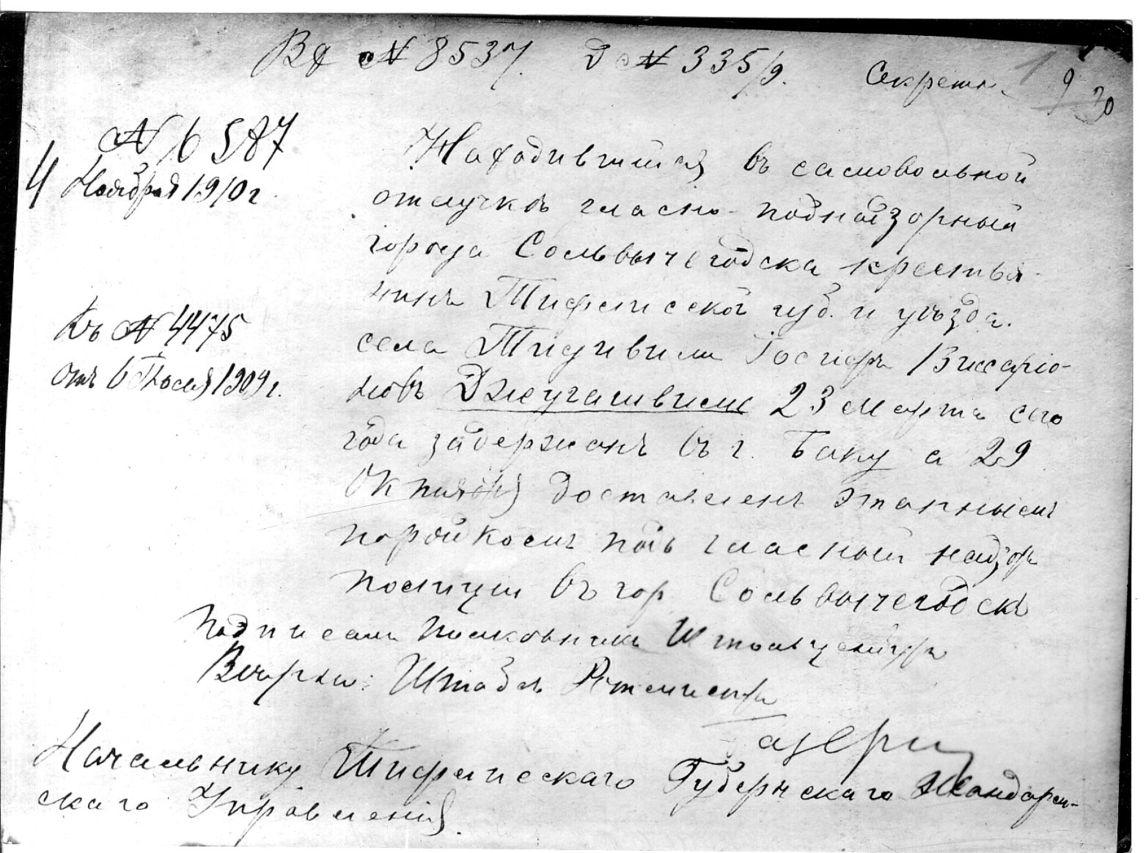 Вх № 8537. Д № 335/9. Секретн.
1 9 30
№ 6587
4 Ноября 1910 г.
Къ № 4475
отъ 6 1909 г.
Находившійся въ самовольной
отлучкѣ гласно-поднадзорный
города Сольвычегодска крестья-
нинъ Тифлисской губ. и уѣзда.
села Тидивили Іосифъ Виссаріо-
новъ Джугашвили 23 марта сего
года задержанъ въ г. Баку а 29
Октября доставленъ этапнымъ
порядкомъ подъ гласный надзоръ
полиціи въ гор. Сольвычегодскъ
Подписалъ Полковникъ
Вѣрно: Штабъ Ротмистръ
Начальнику Тифлисскаго Губернскаго Жандарм-
скаго Управленія.